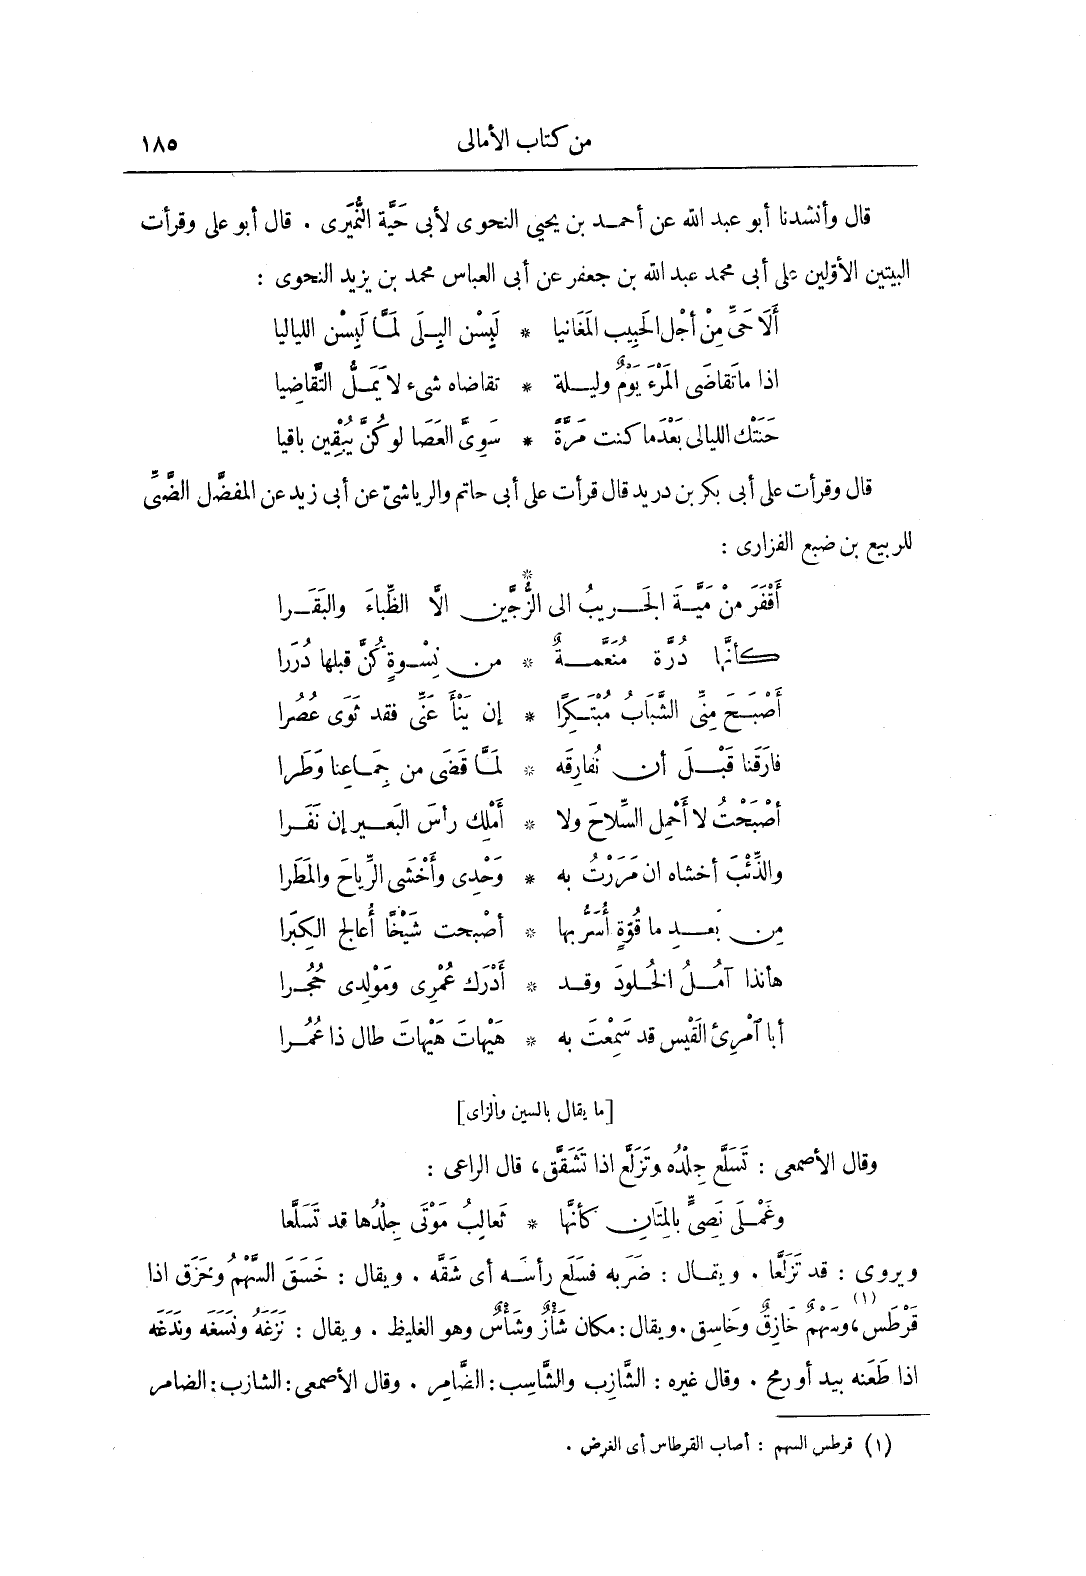 من كتاب الأمالى ١٨٥
قال وأنشدنا أبو عبد الله عن أحمد بن يحيى النحوى لأبى حَيَّة النُّمَيرى . قال أبو على وقرأت
البيتين الأولين على أبى محمد عبد الله بن جعفر عن أبى العباس محمد بن يزيد النحوى :
أَلَا حَىِّ مِنْ أجْل الحَبِيب المَغَانيا * لَبِسْن البِلَى لمَّا لَبِسْن اللياليا
اذا ما تَقاضَى المَرْءَ يَوْمٌ وليلة * تقاضاه شىء لا يَمَلُّ التَّقاضِيا
حَنَتْك الليالى بَعْدَما كنت مَرَّةً * سَوِىَّ العَصَا لو كُنَّ يُبْقِين باقيا
قال وقرأت على أبى بكر بن دريد قال قرأت على أبى حاتم والرياشىّ عن أبى زيد عن المفضَّل الضَّبِّى
للربيع بن ضبع الفزارى :
أَقْفَرَ منْ مَيَّة الجَريبُ الى الزُّجَّين * الَّا الظِّباءَ والبَقَرا
كأنَّها دُرَّة مُنَعَّمةٌ * من نِسْوةٍ كُنَّ قبلها دُرَرا
أَصْبَحَ مِنِّى الشَّبَابُ مُبْتَكِرًا * إن يَنْأَ عَنِّى فقد ثَوَى عُصُرا
فارَقنا قَبْلَ أن نُفارِقه * لمَّا قَضَى من جِمَاعِنا وَطَرا
أصْبَحْتُ لا أَحْمِل السِّلاحَ ولا * أَمْلِك رأسَ البَعير إن نَفَرا
والذِّئْبَ أخشاه ان مَرَرْتُ به * وَحْدِى وأَخْشَى الرِّياحَ والمَطَرا
مِن بَعدِ ما قُوّةٍ أُسَرُّ بها * أصْبحت شَيْخًا أُعالج الكِبَرا
هأنذا آمُلُ الخُلودَ وقد * أَدْرَك عُمْرِى ومَوْلِدى حُجُرا
أبا ٱمْرِئ القَيْس قد سَمِعْتَ به * هَيْهاتَ هَيْهاتَ طال ذا عُمُرا
[ما يقال بالسين والزاى]
وقال الأصمعى : تَسَلَّع جِلْدُه وتَزَلَّع اذا تَشَقَّق، قال الراعى :
وغَمْلَى نَصِىٍّ بالمِتَانِ كأنَّها * ثَعالِبُ مَوْتَى جِلْدُها قد تَسَلَّعا
ويروى : قد تَزَلَّعا . ويقال : ضَرَبه فسَلَع رأسَه أى شَقَّه . ويقال : خَسَقَ السَّهْمُ وخَزَق اذا
قَرْطَس(١)، وسَهْمٌ خَازِقٌ وخَاسِق . ويقال : مكان شَأْزٌ وشَأْسٌ وهو الغليظ . ويقال : نَزَغَهُ ونَسَغَه ونَدَغَه
اذا طَعَنه بيد أو رمح . وقال غيره : الشَّازِب والشَّاسِب : الضَّامِر . وقال الأصمعى : الشازب : الضامر
(١) قرطس السهم : أصاب القرطاس أى الغرض .